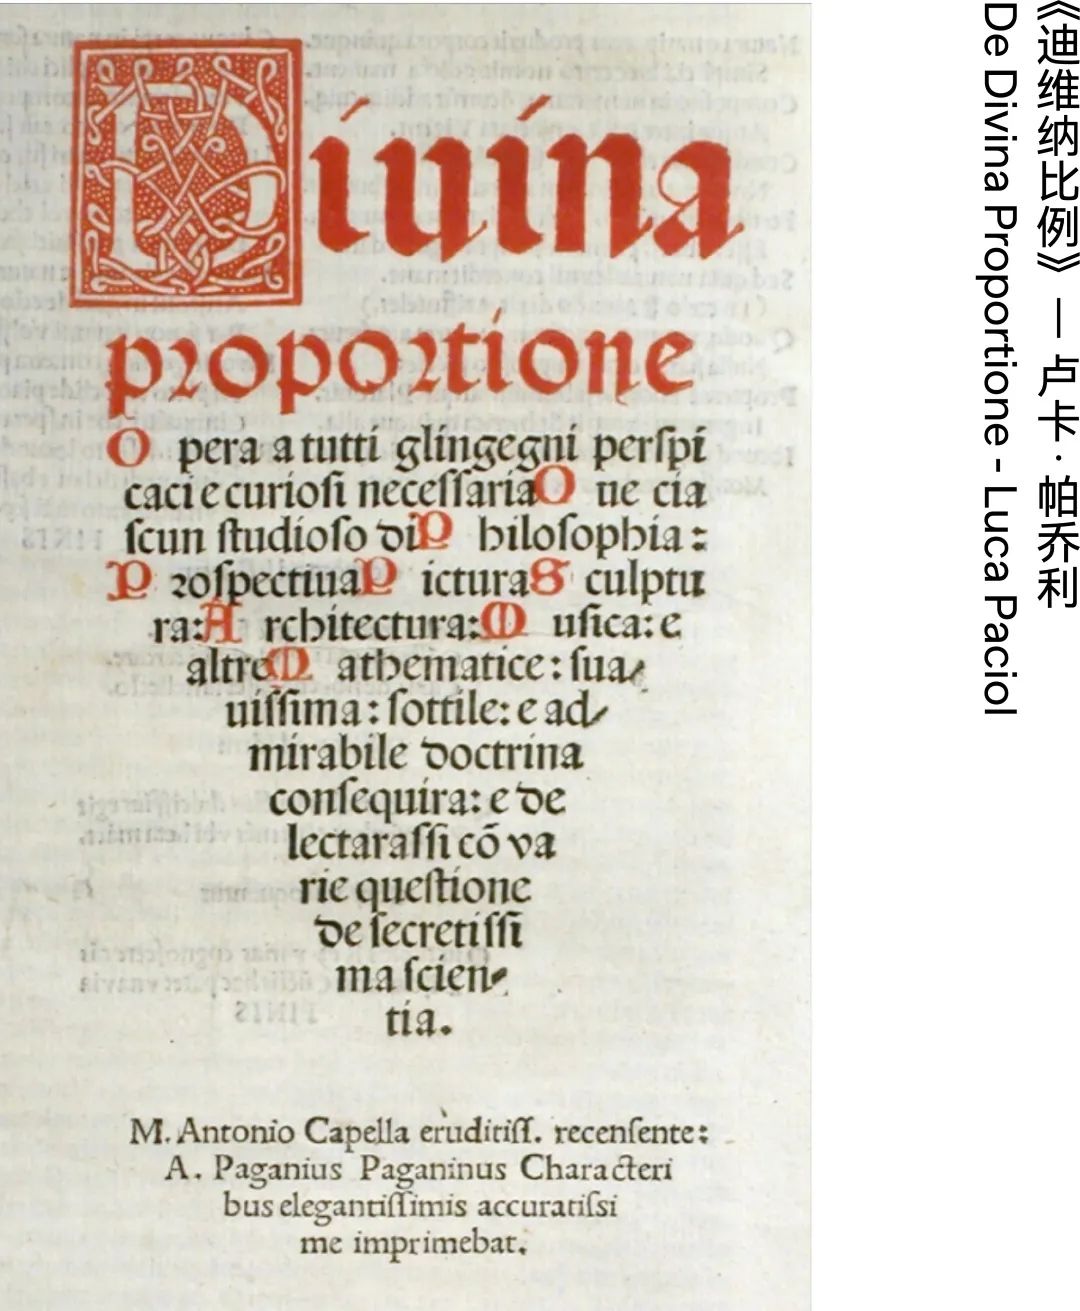 Diuina
proportione
Opera a tutti glingegni perſpi
caci e curioſi neceſſaria Oue cia
ſcun ſtudioſo di Philoſophia:
Proſpectiua Pictura Sculptu
ra: Architectura: Muſica: e
altre Mathematice: ſua⸗
uiſſima: ſottile: e ad⸗
mirabile doctrina
conſequira: e de
lectaraſſi cõ va
rie queſtione
de ſecretiſſi
ma ſcien⸗
tia.
M. Antonio Capella eruditiſſ. recenſente:
A. Paganius Paganinus Characteri
bus elegantiſſimis accuratiſsi
me imprimebat.
《迪维纳比例》 — 卢卡 · 帕乔利
De Divina Proportione - Luca Paciol